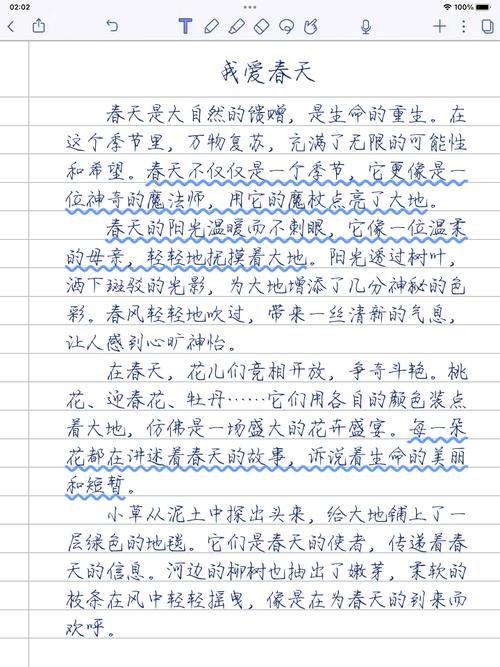 02:02
100%
我爱春天
春天是大自然的馈赠，是生命的重生。在
这个季节里，万物复苏，充满了无限的可能性
和希望。春天不仅仅是一个季节，它更像是一
位神奇的魔法师，用它的魔杖点亮了大地。
春天的阳光温暖而不刺眼，它像一位温柔
的母亲，轻轻地抚摸着大地。阳光透过树叶，
洒下斑驳的光影，为大地增添了几分神秘的色
彩。春风轻轻地吹过，带来一丝清新的气息，
让人感到心旷神怡。
在春天，花儿们竞相开放，争奇斗艳。桃
花、迎春花、牡丹……它们用各自的颜色装点
着大地，仿佛是一场盛大的花卉盛宴。每一朵
花都在讲述着春天的故事，诉说着生命的美丽
和短暂。
小草从泥土中探出头来，给大地铺上了一
层绿色的地毯。它们是春天的使者，传递着春
天的信息。河边的柳树也抽出了嫩芽，柔软的
枝条在风中轻轻摇曳，像是在为春天的到来而
欢呼。